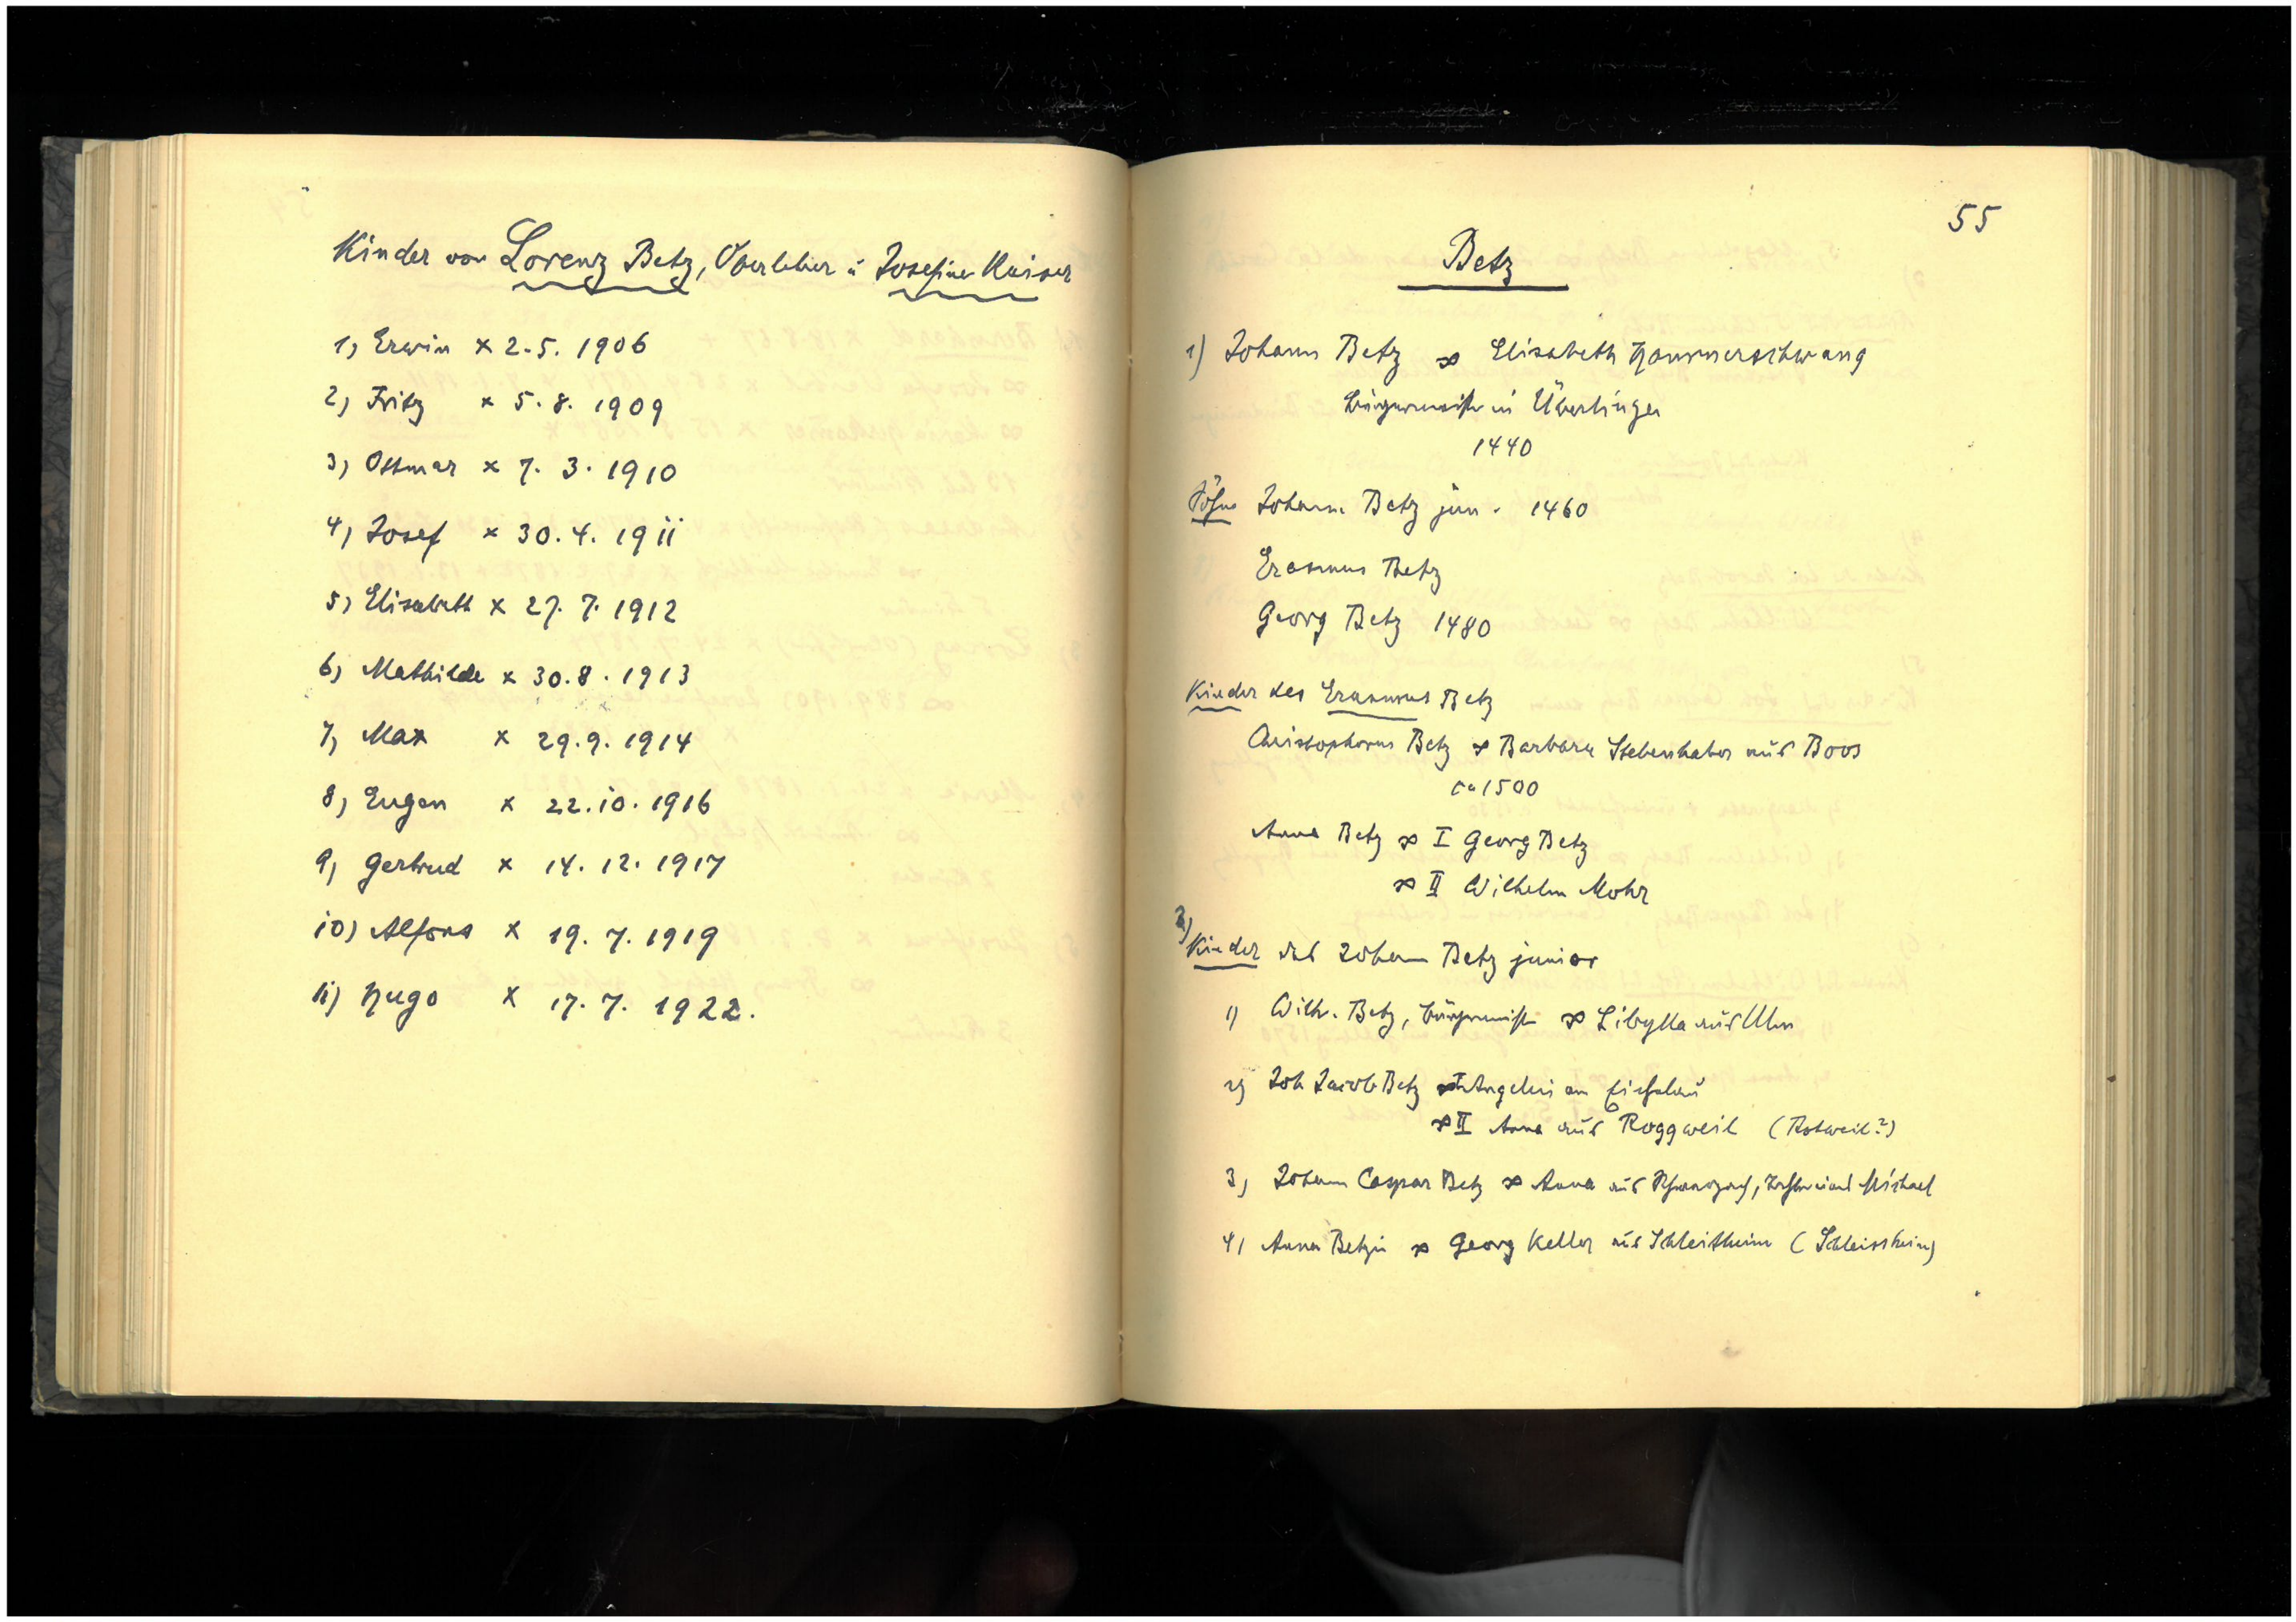 Kinder von Lorenz Betz, Oberlehrer ü Josefine Kaiser
1) Erwin × 2.5. 1906
2) Fritz × 5.8. 1909
3) Ottmar × 7. 3. 1910
4) Josef × 30. 4. 1911
5) Elisabeth × 27. 7. 1912
6) Mathilde × 30. 8. 1913
7) Max × 29. 9. 1914
8) Eugen × 22. 10. 1916
9) Gertrud × 14. 12. 1917
10) Alfons × 19. 7. 1919
11) Hugo × 17. 7. 1922.
55
Betz
1) Johann Betz ∞ Elisabeth Hammerschwang
Bürgermeister in Überlingen
1440
Söhne Johann Betz jun. 1460
Erasmus Betz
Georg Betz 1480
Kinder des Erasmus Betz
Christophorus Betz ∞ Barbara Stebenhaber aus Boos
ca 1500
Anna Betz ∞ I Georg Betz
∞ II Wilhelm Mohr
3) Kinder des Johann Betz junior
1) Wilh. Betz, Bürgermeister ∞ Libylla aus Ulm
2) Joh Jacob Betz ∞ I Angelin
∞ II Anna aus Roggweil (Rotweil?)
3) Johann Caspar Betz ∞ Anna aus Michael
4) Anna Betzin ∞ Georg Keller aus Schleitheim (Schleissheim)